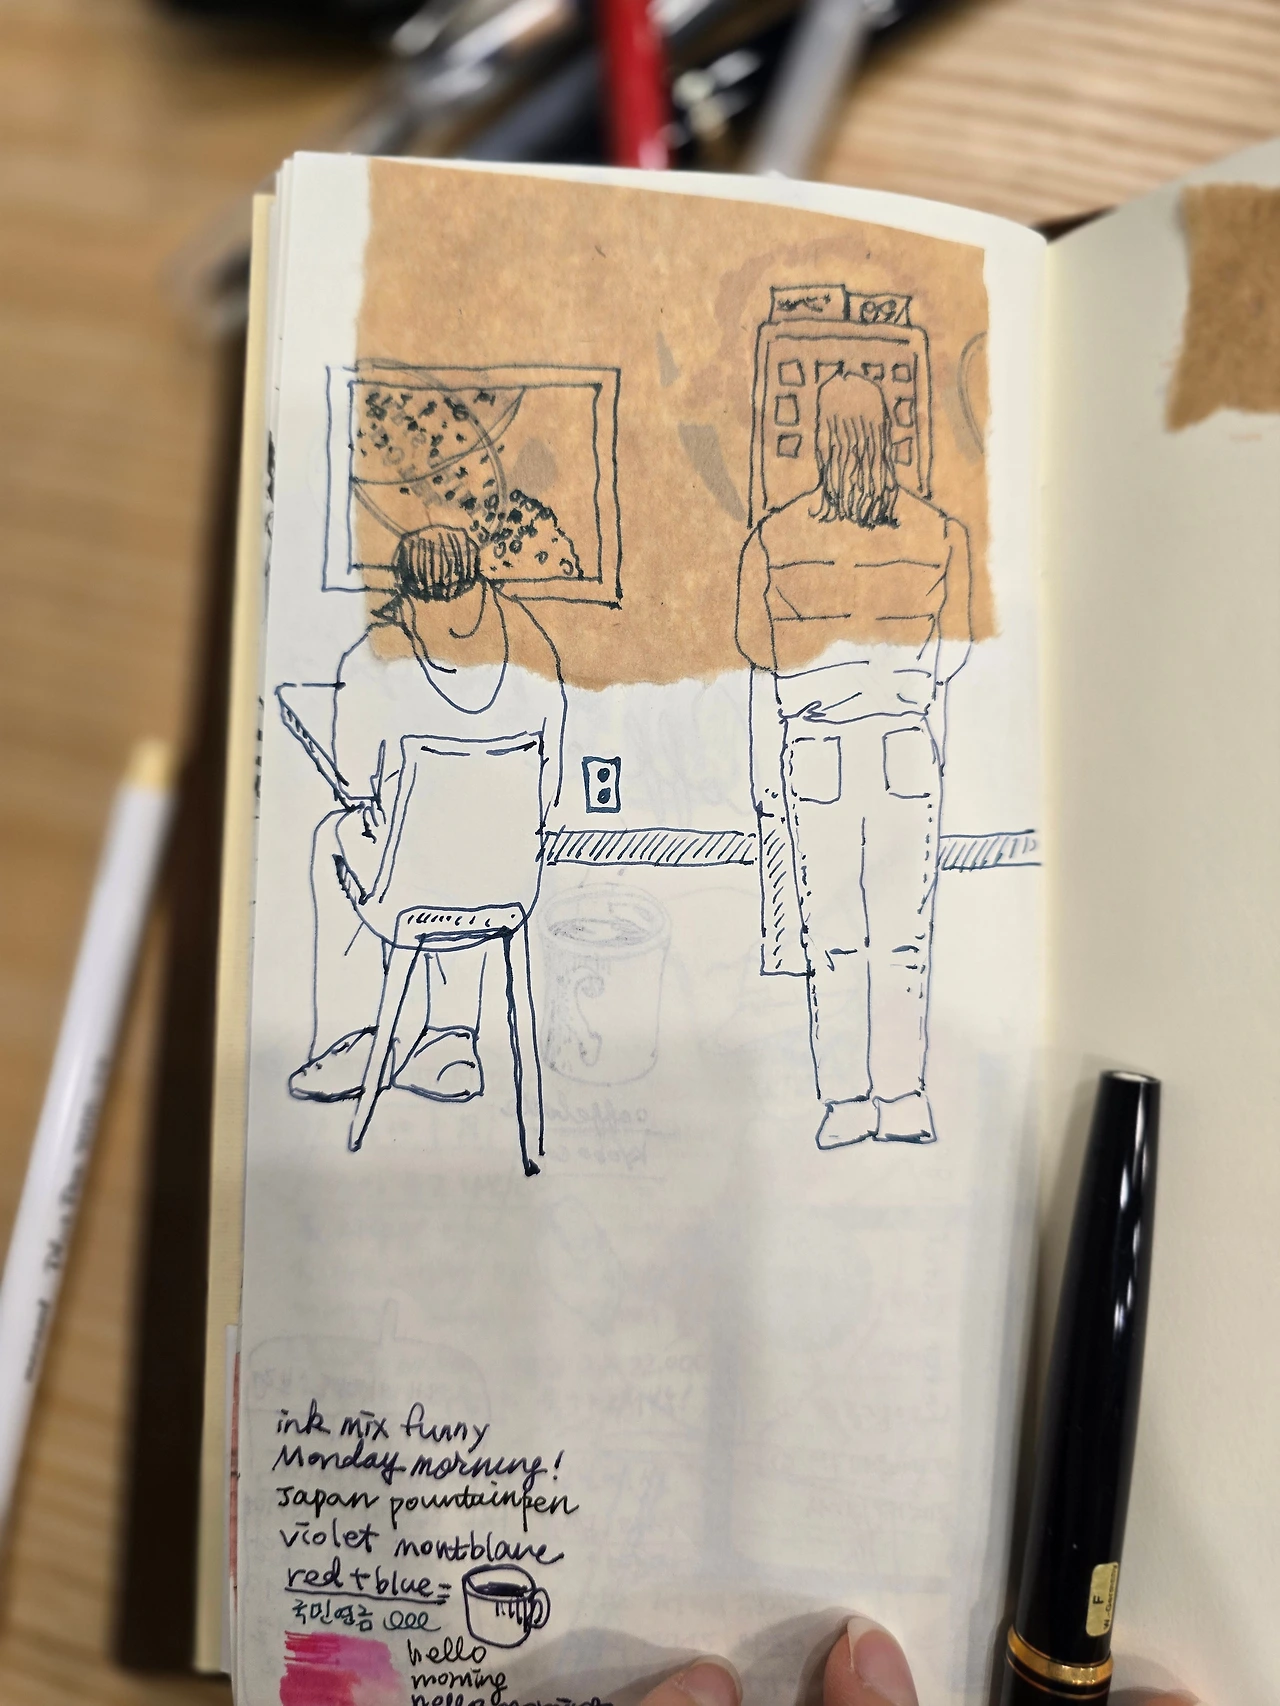 ink mix funny
Monday morning!
Japan pountainpen
violet montblanc
red+blue=
국민연금 eee
hello
morning
hello
F
W.-Germany